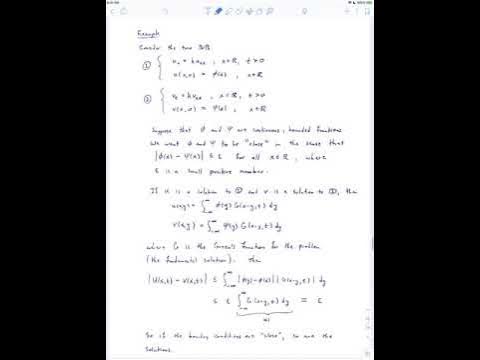 Example
Consider the two IVPs
① { u_t = k u_xx , x∈ℝ, t>0
u(x,0) = ϕ(x) , x∈ℝ
② { v_t = k v_xx , x∈ℝ, t>0
v(x,0) = ψ(x) , x∈ℝ
Suppose that ϕ and ψ are continuous, bounded functions
We want ϕ and ψ to be "close" in the sense that
|ϕ(x) - ψ(x)| ≤ ε for all x∈ℝ, where
ε is a small positive number.
If u is a solution to ① and v is a solution to ②, then
u(x,y) = ∫_{-∞}^{∞} ϕ(y) G(x-y,t) dy
v(x,y) = ∫_{-∞}^{∞} ψ(y) G(x-y,t) dy
where G is the Green's Function for the problem
(the fundamental solution). Then
|u(x,t) - v(x,t)| ≤ ∫_{-∞}^{∞} |ϕ(y) - ψ(y)| |G(x-y,t)| dy
≤ ε ∫_{-∞}^{∞} G(x-y,t) dy = ε
=1
So if the boundary conditions are "close", so are the
solutions.